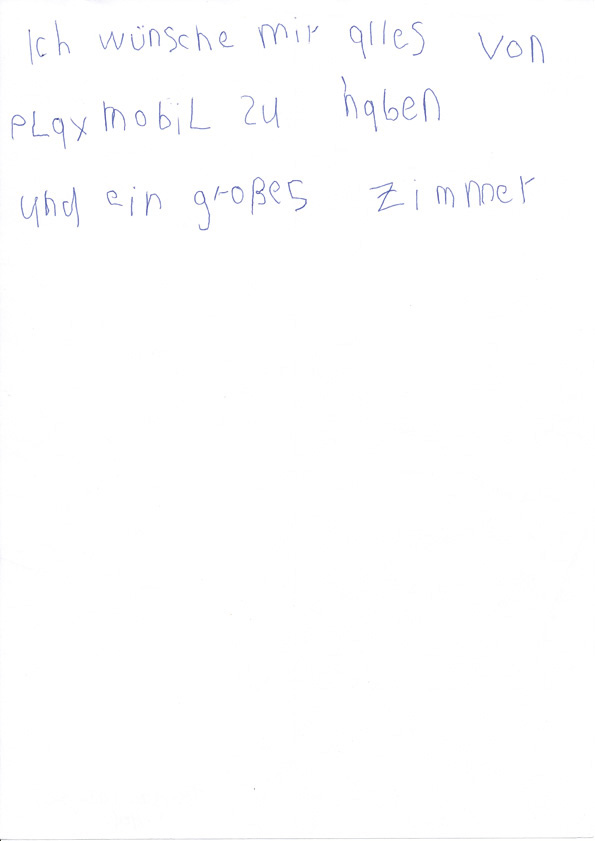 Ich wünsche mir alles von
PLaxmobiL zu haben
und ein großes Zimmer